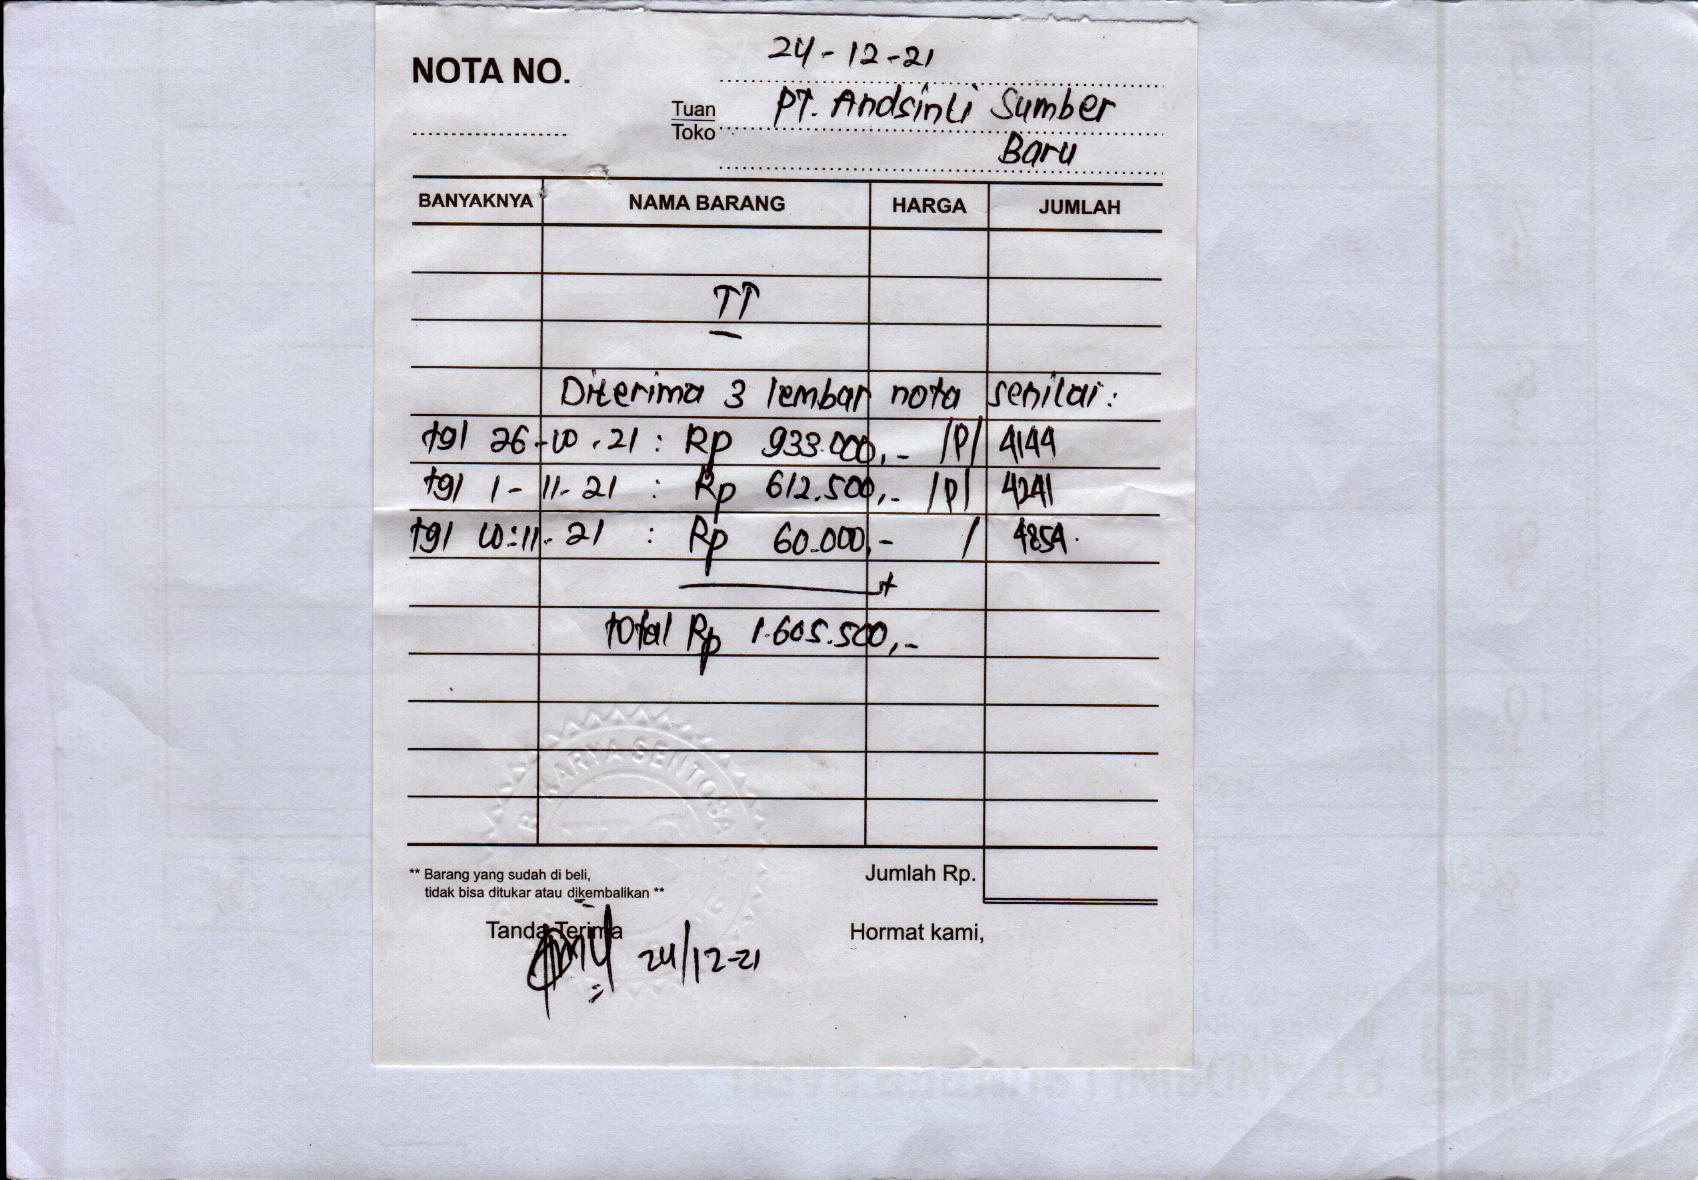 24-12-21
NOTA NO.
Tuan PT. Andsinli Sumber
Toko
Baru
BANYAKNYA NAMA BARANG HARGA JUMLAH
TT
Diterima 3 lembar nota senilai:
tgl 26-10-21 : Rp 933.000,- /P/ 4144
tgl 1-11-21 : Rp 612.500,- /P/ 4241
tgl 10-11-21 : Rp 60.000,- / 4854.
+
total Rp 1.605.500,-
KARYA SENTOSA
** Barang yang sudah di beli, Jumlah Rp.
tidak bisa ditukar atau dikembalikan **
Tanda Terima Hormat kami,
24/12-21